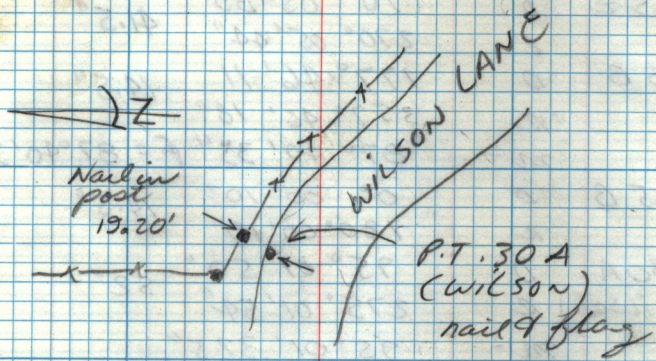 WILSON LANE
Z
Nail in
post
19.20'
P.T. 30 A
(WILSON)
nail & flag